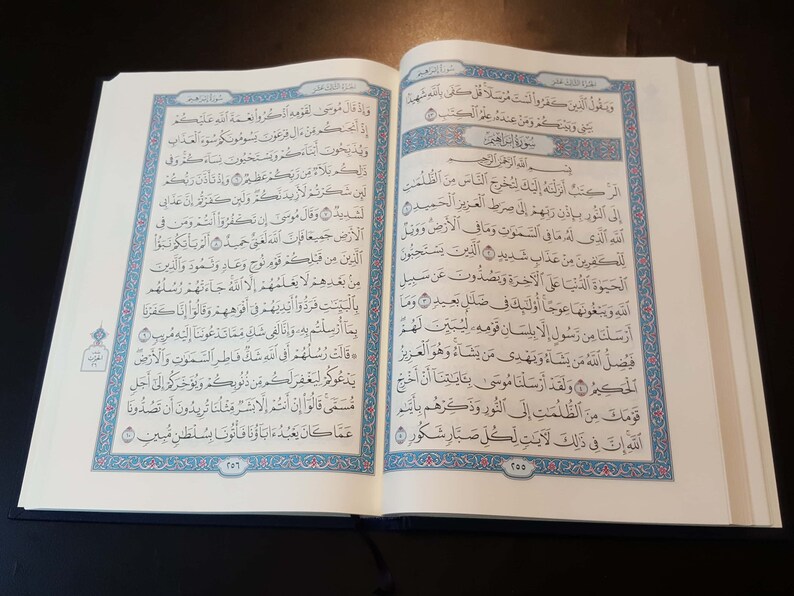 الجزء الثالث عشر
سورة إبراهيم
وَيَقُولُ ٱلَّذِينَ كَفَرُواْ لَسْتَ مُرْسَلًا ۚ قُلْ كَفَىٰ بِٱللَّهِ شَهِيدًۢا
بَيْنِى وَبَيْنَكُمْ وَمَنْ عِندَهُۥ عِلْمُ ٱلْكِتَٰبِ ٤٣
سُورَةُ إِبْرَاهِيمَ
بِسْمِ ٱللَّهِ ٱلرَّحْمَٰنِ ٱلرَّحِيمِ
الٓر ۚ كِتَٰبٌ أَنزَلْنَٰهُ إِلَيْكَ لِتُخْرِجَ ٱلنَّاسَ مِنَ ٱلظُّلُمَٰتِ
إِلَى ٱلنُّورِ بِإِذْنِ رَبِّهِمْ إِلَىٰ صِرَٰطِ ٱلْعَزِيزِ ٱلْحَمِيدِ ١
ٱللَّهِ ٱلَّذِى لَهُۥ مَا فِى ٱلسَّمَٰوَٰتِ وَمَا فِى ٱلْأَرْضِ ۗ وَوَيْلٌ
لِّلْكَٰفِرِينَ مِنْ عَذَابٍ شَدِيدٍ ٢ ٱلَّذِينَ يَسْتَحِبُّونَ
ٱلْحَيَوٰةَ ٱلدُّنْيَا عَلَى ٱلْءَاخِرَةِ وَيَصُدُّونَ عَن سَبِيلِ
ٱللَّهِ وَيَبْغُونَهَا عِوَجًا ۚ أُوْلَٰٓئِكَ فِى ضَلَٰلٍۭ بَعِيدٍ ٣ وَمَآ
أَرْسَلْنَا مِن رَّسُولٍ إِلَّا بِلِسَانِ قَوْمِهِۦ لِيُبَيِّنَ لَهُمْ ۖ
فَيُضِلُّ ٱللَّهُ مَن يَشَآءُ وَيَهْدِى مَن يَشَآءُ ۚ وَهُوَ ٱلْعَزِيزُ
ٱلْحَكِيمُ ٤ وَلَقَدْ أَرْسَلْنَا مُوسَىٰ بِـَٔايَٰتِنَآ أَنْ أَخْرِجْ
قَوْمَكَ مِنَ ٱلظُّلُمَٰتِ إِلَى ٱلنُّورِ وَذَكِّرْهُم بِأَيَّىٰمِ
ٱللَّهِ ۚ إِنَّ فِى ذَٰلِكَ لَءَايَٰتٍ لِّكُلِّ صَبَّارٍ شَكُورٍ ٥
٢٥٥
الجزء الثالث عشر
سورة إبراهيم
وَإِذْ قَالَ مُوسَىٰ لِقَوْمِهِ ٱذْكُرُواْ نِعْمَةَ ٱللَّهِ عَلَيْكُمْ
إِذْ أَنجَىٰكُم مِّنْ ءَالِ فِرْعَوْنَ يَسُومُونَكُمْ سُوٓءَ ٱلْعَذَابِ
وَيُذَبِّحُونَ أَبْنَآءَكُمْ وَيَسْتَحْيُونَ نِسَآءَكُمْ ۚ وَفِى
ذَٰلِكُم بَلَآءٌ مِّن رَّبِّكُمْ عَظِيمٌ ٦ وَإِذْ تَأَذَّنَ رَبُّكُمْ
لَئِن شَكَرْتُمْ لَأَزِيدَنَّكُمْ ۖ وَلَئِن كَفَرْتُمْ إِنَّ عَذَابِى
لَشَدِيدٌ ٧ وَقَالَ مُوسَىٰٓ إِن تَكْفُرُوٓاْ أَنتُمْ وَمَن فِى
ٱلْأَرْضِ جَمِيعًا فَإِنَّ ٱللَّهَ لَغَنِىٌّ حَمِيدٌ ٨ أَلَمْ يَأْتِكُمْ نَبَؤُاْ
ٱلَّذِينَ مِن قَبْلِكُمْ قَوْمِ نُوحٍ وَعَادٍ وَثَمُودَ ۛ وَٱلَّذِينَ
مِنۢ بَعْدِهِمْ ۛ لَا يَعْلَمُهُمْ إِلَّا ٱللَّهُ ۚ جَآءَتْهُمْ رُسُلُهُم
بِٱلْبَيِّنَٰتِ فَرَدُّوٓاْ أَيْدِيَهُمْ فِىٓ أَفْوَٰهِهِمْ وَقَالُوٓاْ إِنَّا كَفَرْنَا
بِمَآ أُرْسِلْتُم بِهِۦ وَإِنَّا لَفِى شَكٍّ مِّمَّا تَدْعُونَنَآ إِلَيْهِ مُرِيبٍ ٩
۞ قَالَتْ رُسُلُهُمْ أَفِى ٱللَّهِ شَكٌّ فَاطِرِ ٱلسَّمَٰوَٰتِ وَٱلْأَرْضِ ۖ
يَدْعُوكُمْ لِيَغْفِرَ لَكُم مِّن ذُنُوبِكُمْ وَيُؤَخِّرَكُمْ إِلَىٰٓ أَجَلٍ
مُّسَمًّى ۚ قَالُوٓاْ إِنْ أَنتُمْ إِلَّا بَشَرٌ مِّثْلُنَا تُرِيدُونَ أَن تَصُدُّونَا
عَمَّا كَانَ يَعْبُدُ ءَابَآؤُنَا فَأْتُونَا بِسُلْطَٰنٍ مُّبِينٍ ١٠
الحزب
٢٦
٢٥٦